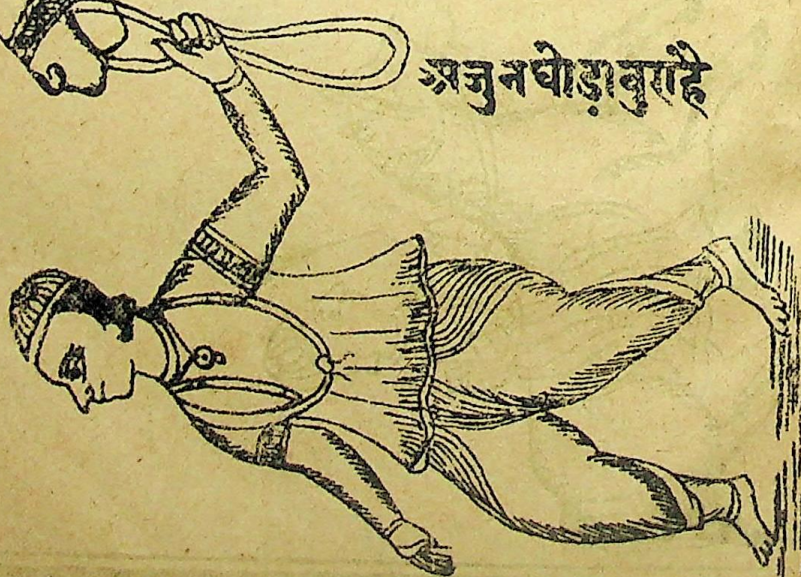 अजुनघोड़ाबुराहै